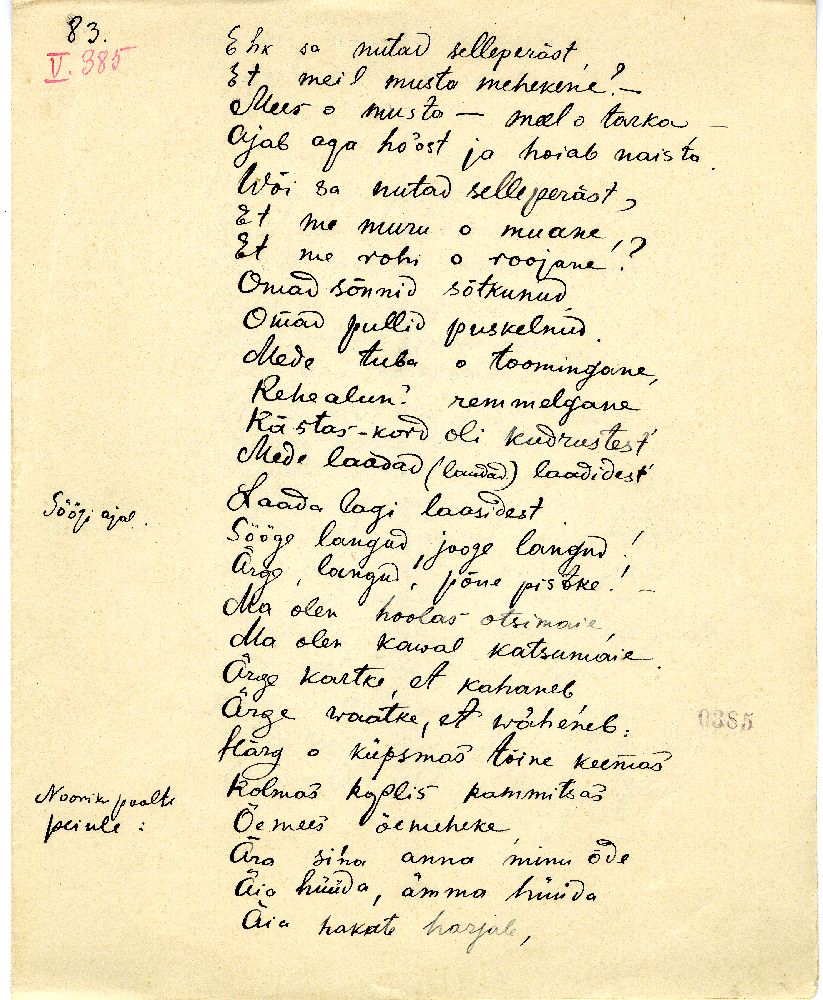 83.
V. 385
Ehk sa nutad selleperäst,
Et meil musta mehekene? —
Mees o musta — meel o tarka —
Ajab aga hööst ja hoiab naista.
Wõi sa nutad selleperäst,
Et me muru o muane,
Et me rohi o roojane?
Omad sõnnid sõtkunud,
Omad pullid puskelnud.
Mede tuba o toomingane,
Rehealun? remmelgane
Kästas-kord oli kudrustest
Mede laadad (laudad) laadidest
Laada lagi laasidest
Söögi ajal.
Sööge langud, jooge langud!
Ärge, langud, põue pistke! —
Ma olen hoolas otsimaie,
Ma olen kawal katsumaie.
Ärge kartke, et kahaneb
Ärge waatke, et wäheneb:
0385
Härg o küpsmas tõine keemas
Kolmas koplis kammitsas
Nooriku poolte
peiule:
Õemees õemeheke,
Ära sina anna minu õde
Äia hüüda, ämma hüüda
Äia hakate harjale,